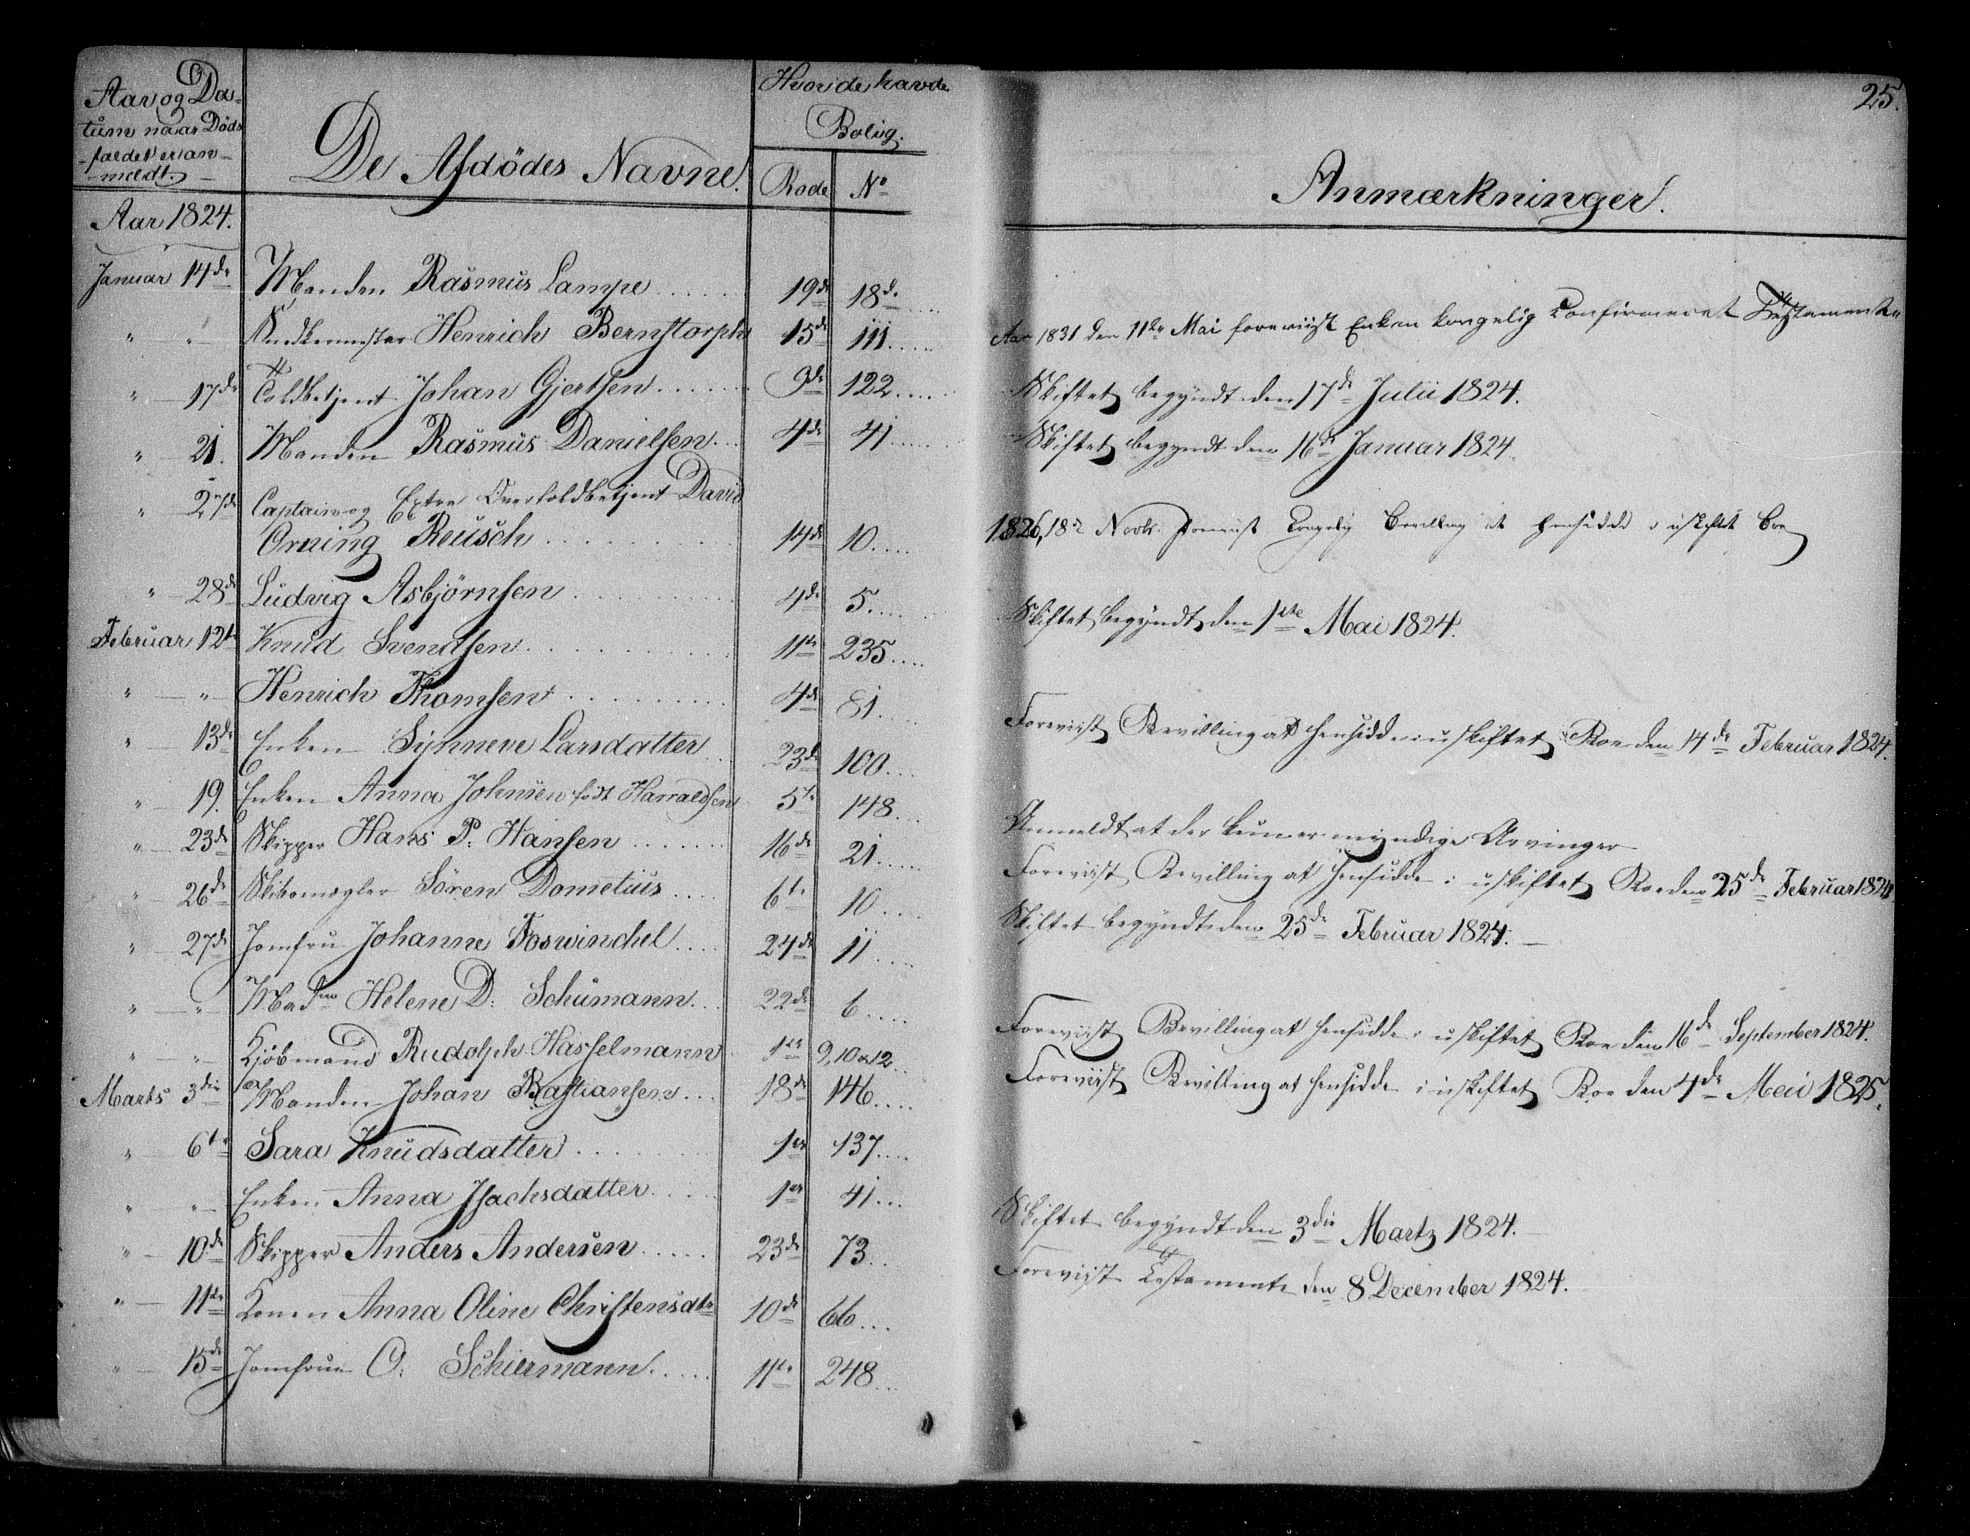 Aar og Da-
tum naar Döds
-faldet er an-
-meldt.
De Afdödes Navne.
Hvor de havde
Bolig.
Rode No
Aar 1824.
Januar 14de Manden Rasmus Lampe 19de 18de
" " Henrich Bernstorph 15de 111
" 17de Toldbetjent Johan Gjertsen 9de 122
" 21. Manden Rasmus Danielsen 4de 41
" 27de Captain og Extra Overtoldbetjent David
Orning Reusch 14de 10
" 28de Ludvig Asbjörnsen 4de 5
Februar 12te Knud Svendsen 11te 235
" " Henrich Thomsen 4de 81
" 13de Enken Siphneve Larsdatter 23de 100
" 19. Enken Anna Johnsen födt Harraldsen 5te 148
" 23de Skipper Hans P. Hansen 16de 21
" 26de Skibsmægler Sören Dometius 6te 10
" 27de Jomfru Johanne Foswinckel 24de 11
" " Madme Helene D: Schumann 22de 6
" " Kjöbmand Rudolph Hasselmann 1ste 9, 10 & 12
Marts 3die Manden Johan Bastiansen 18de 146
" 6te Sara Knudsdatter 1ste 137
" " Enken Anna Isachsdatter 1ste 41
" 10de Skipper Anders Andersen 23de 73
" 11te Konen Anna Oline Christensdtr 10de 66
" 15de Jomfrue C: Schiermann 11te 248
25.
Anmærkninger.
Aar 1831 den 11te Mai foreviist Enken kongelig Confirmeret Testamente
Skiftet begyndt den 17de Julii 1824.
Skiftet begyndt den 16de Januar 1824.
1826, 18de Novbr. foreviist Kongelig Bevilling at hensidde i uskiftet Boe
Skiftet begyndt den 1ste Mai 1824.
Foreviist Bevilling at hensidde i uskiftet Boe den 14de Februar 1824.
Anmeldt at der kun er myndige Arvinger
Foreviist Bevilling at hensidde i uskiftet Boe den 25de Februar 1824
Skiftet begyndt den 25de Februar 1824.
Foreviist Bevilling at hensidde i uskiftet Boe den 16de September 1824.
Foreviist Bevilling at hensidde i uskiftet Boe den 4de Mai 1825.
Skiftet begyndt den 3die Martz 1824.
Foreviist Testamente den 8 December 1824.